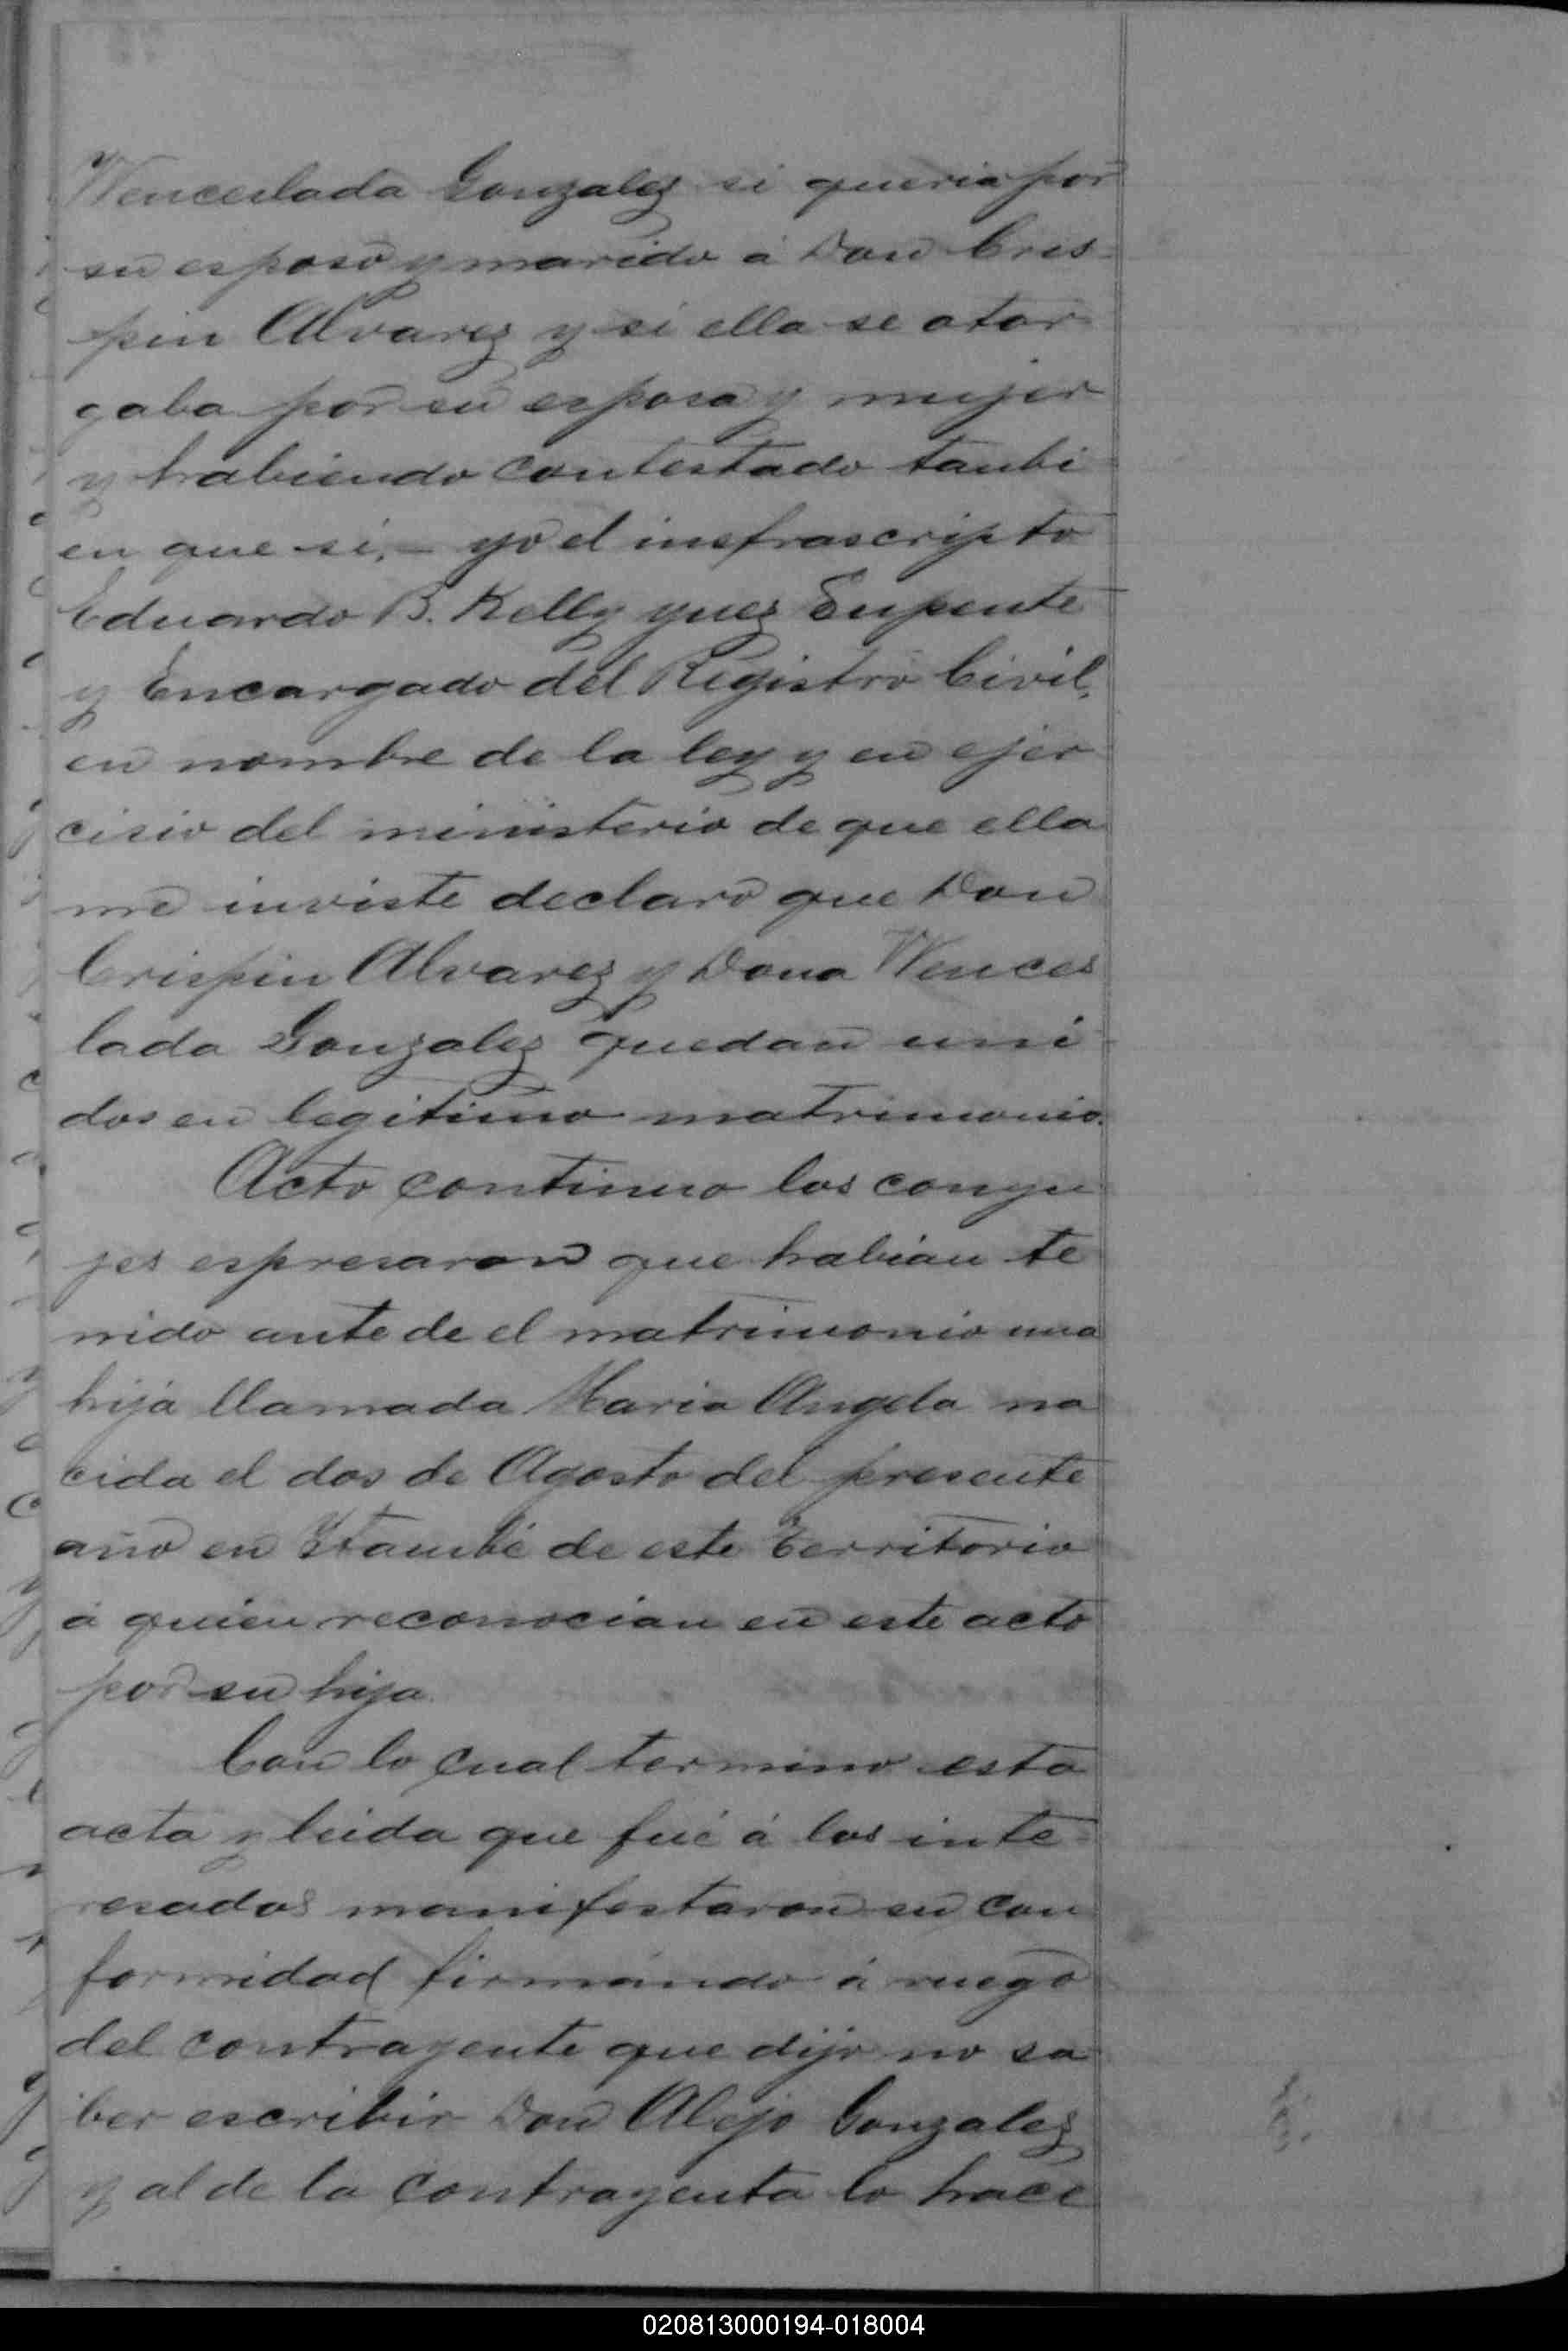 Wenceslada Gonzalez si queria por
su esposo y marido á Don Cris-
pin Alvarez y si ella se otor
gaba por su esposa y mujer
y habiendo contestado tambi
en que si, – yo el insfrascripto
Eduardo B. Kelly yuez Supente
y Encargado del Registro Civil,
en nombre de la ley y en ejer
cisio del ministerio de que ella
me inviste declaro que Don
Crispin Alvarez y Dona Wences
lada Gonzalez quedan uni-
dos en legitimo matrimonio.
Acto continuo los conyu
jes espresaron que habian te
nido ante de el matrimonio una
hija llamada Maria Angela na
cida el dos de Agosto del presente
año en Itambé de este Territorio
á quien reconocian en este acto
por su hija.
Con lo cual termino esta
acta y leida que fué á los inte-
resados manifestaron su con
formidad firmando á ruego
del contrayente que dijo no sa
ber escribir Don Alejo Gonzalez
y al de la contrayenta lo hace
020813000194-018004